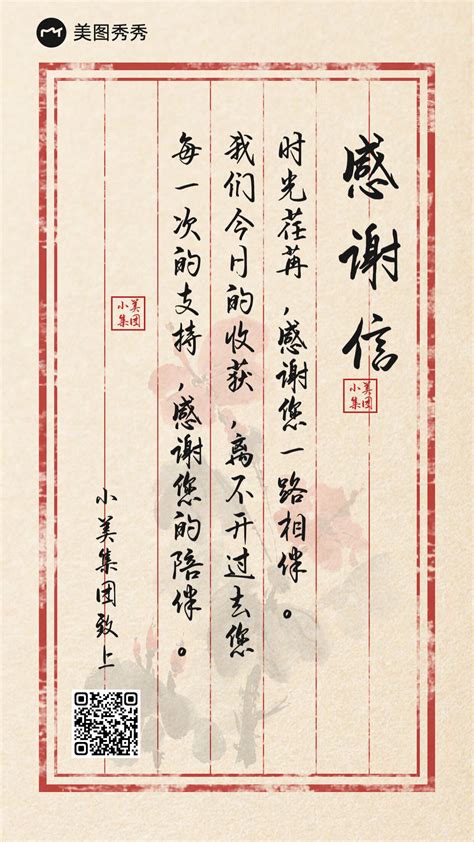 美图秀秀
感谢信
小美集团
时光荏苒，感谢您一路相伴。
我们今日的收获，离不开过去您
每一次的支持，感谢您的陪伴。
小美集团
小美集团致上